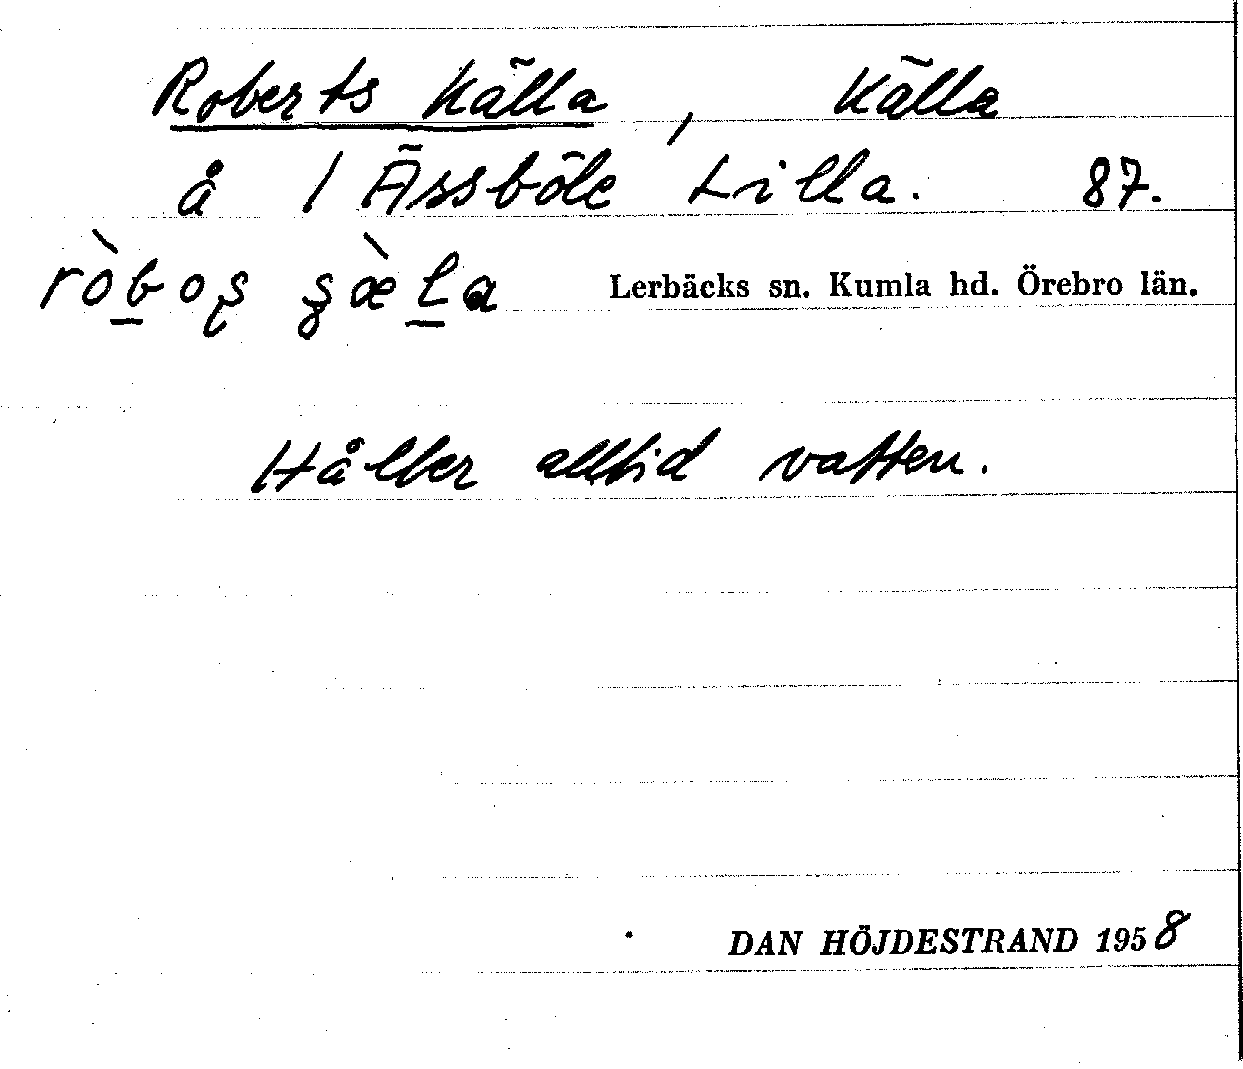 Roberts Källa, Källa
å 1 Ässböle Lilla. 87.
Lerbäcks sn. Kumla hd. Örebro län.
Håller alltid vatten.
DAN HÖJDESTRAND 1958